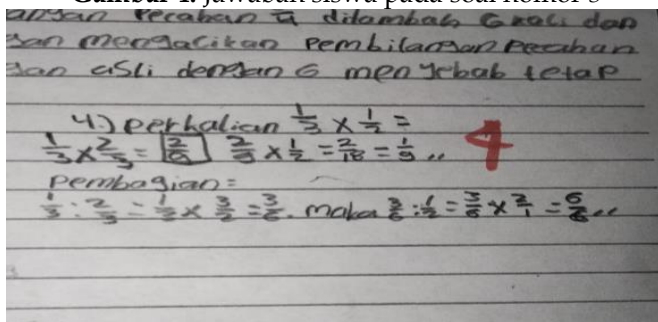 Gambar 4. Jawaban siswa pada soal nomor 3
pecahan dilambah 6 kali dan
mengacikan pembilangan pecahan
asli dengan 6 menyebab tetap
4.) perkalian 1/3 x 1/2 =
1/3 x 2/3 = 2/9 2/9 x 1/2 = 2/18 = 1/9 ,, 4
pembagian =
1/3 : 2/3 = 1/3 x 3/2 = 3/6. maka 3/6 : 1/2 = 3/6 x 2/1 = 6/6 ,,